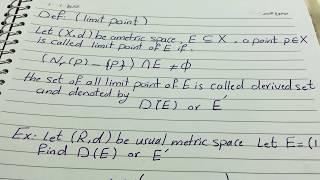 Def. (limit point)
Let (X,d) be ametric space, E ⊆ X, a point p∈X
is called limit point of E if
(Nᵣ(p) - {p}) ∩ E ≠ ϕ
the set of all limit point of E is called derived set
and denoted by
D(E) or E′
Ex:- Let (R,d) be usual metric space Let E=(1
Find D(E) or E′